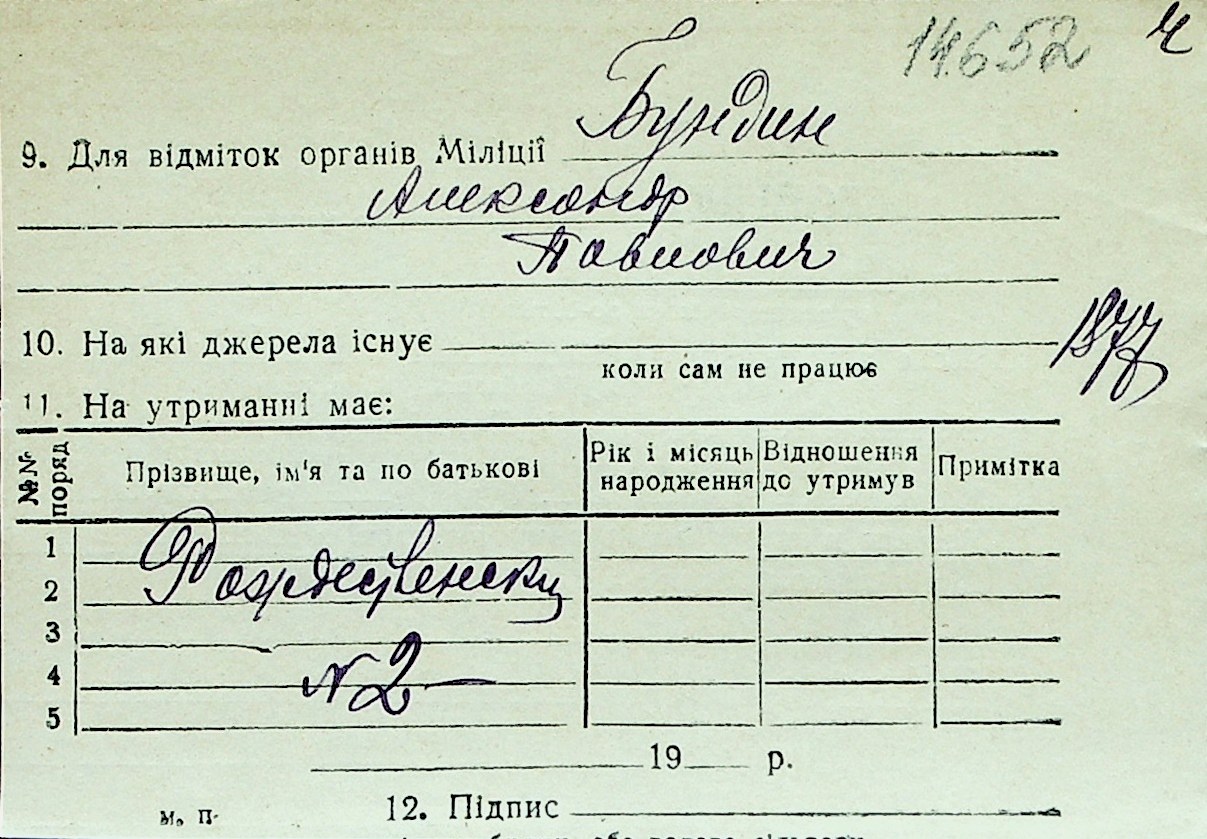 14652 ч
Бундин
9. Для відміток органів Міліції
Александр
Павлович
10. На які джерела існує
коли сам не працює
1877
11. На утриманні має:
№№ поряд Прізвище, ім'я та по батькові Рік і місяць народження Відношення до утримув Примітка
1
Рождественску
2
3
4 № 2
5
19 р.
м. п. 12. Підпис